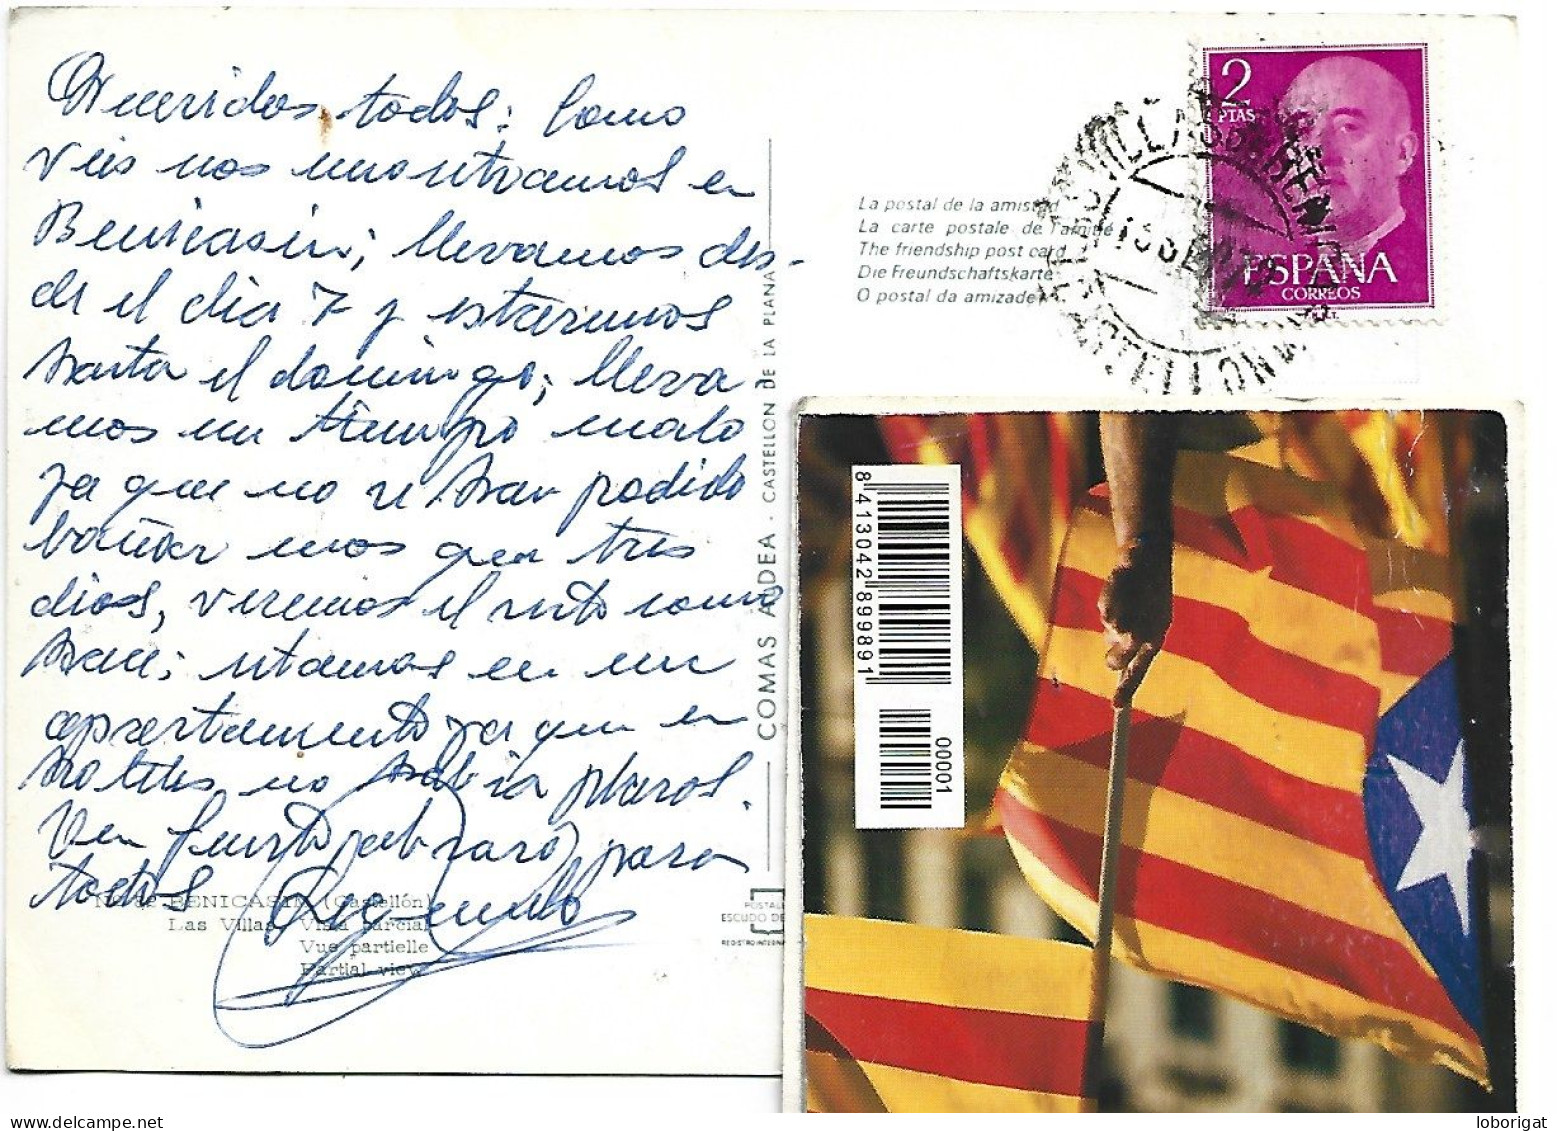 Queridos todos: Como
veis nos encontramos en
Benicasin; llevamos des-
de el dia 7 y estaremos
hasta el domingo; lleva
mos un tiempo malo
ya que no se han podido
bañar mas que tres
dias, veremos el resto como
hace; estamos en un
apartamento ya que en
hoteles no habia plazas.
Un fuerte abrazo para
todos
BENICASIN (Castellón)
Las Villas. Vista parcial
Vue partielle
Partial view
COMAS ALDEA · CASTELLON DE LA PLANA
POSTAL
ESCUDO DE
REGISTRO INTERNA
La postal de la amistad
La carte postale de l'amitié
The friendship post card
Die Freundschaftskarte
O postal da amizade
2
PTAS
ESPAÑA
CORREOS
8 413042 899891
00001
loborigat